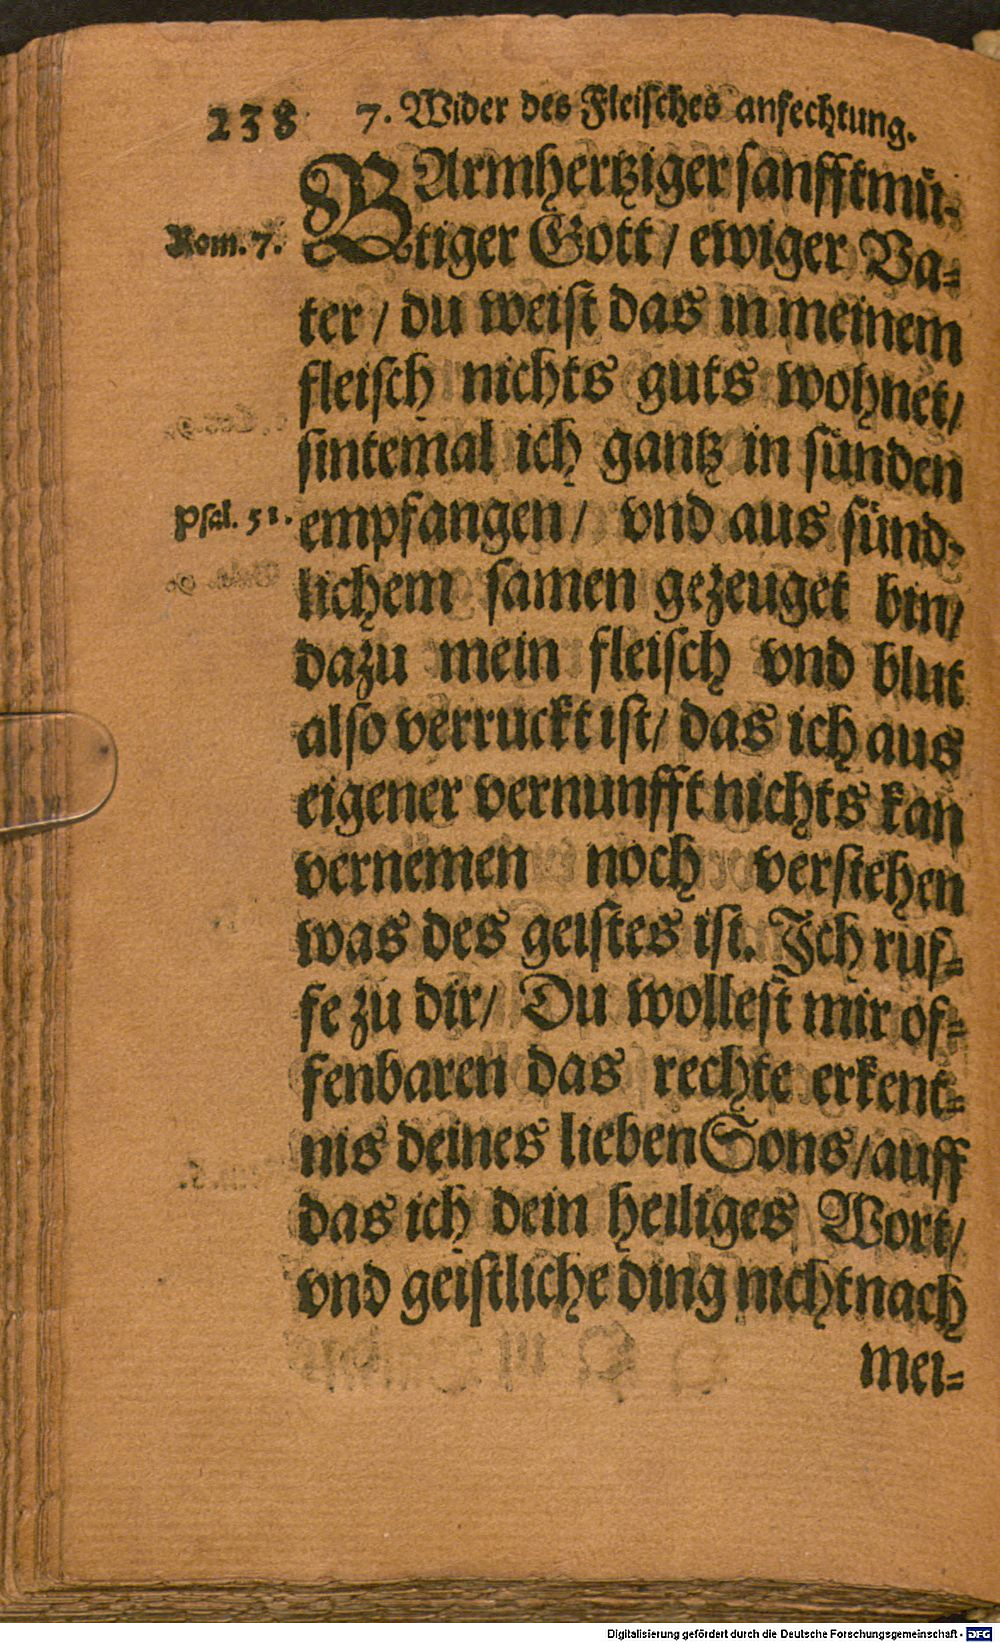 238 7. Wider des Fleisches anfechtung.
BArmhertziger sanfftmü-
Rom. 7. tiger Gott/ ewiger Va-
ter/ du weist das in meinem
fleisch nichts guts wohnet/
sintemal ich gantz in sünden
Psal. 51. empfangen/ vnd aus sünd-
lichem samen gezeuget bin/
dazu mein fleisch vnd blut
also verruckt ist/ das ich aus
eigener vernunfft nichts kan
vernemen noch verstehen
was des geistes ist. Ich ruf-
fe zu dir/ Du wollest mir of-
fenbaren das rechte erkent-
nis deines lieben Sons/ auff
das ich dein heiliges Wort/
vnd geistliche ding nicht nach
mei-
Digitalisierung gefördert durch die Deutsche Forschungsgemeinschaft - DFG